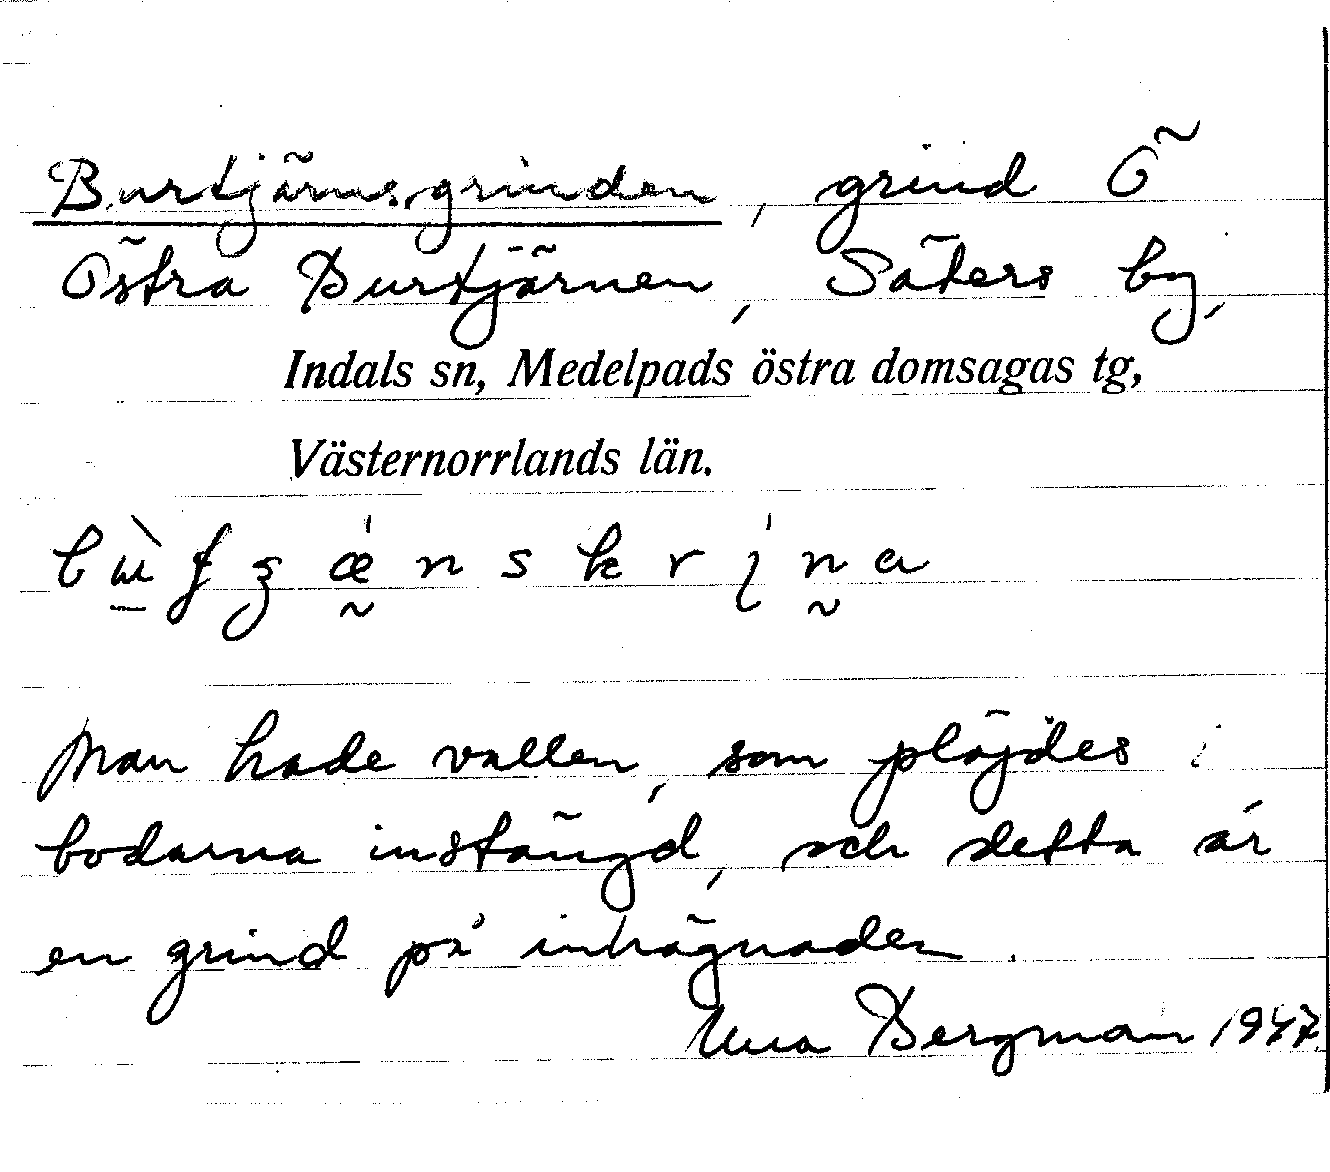 Burtjärnsgrinden, grind Ö
Östra Burtjärnen, Säters by,
Indals sn, Medelpads östra domsagas tg,
Västernorrlands län.
Man hade vallen, som plöjdes i
bodarna instängd, och detta är
en grind på inhägnaden.
Una Bergman 1947